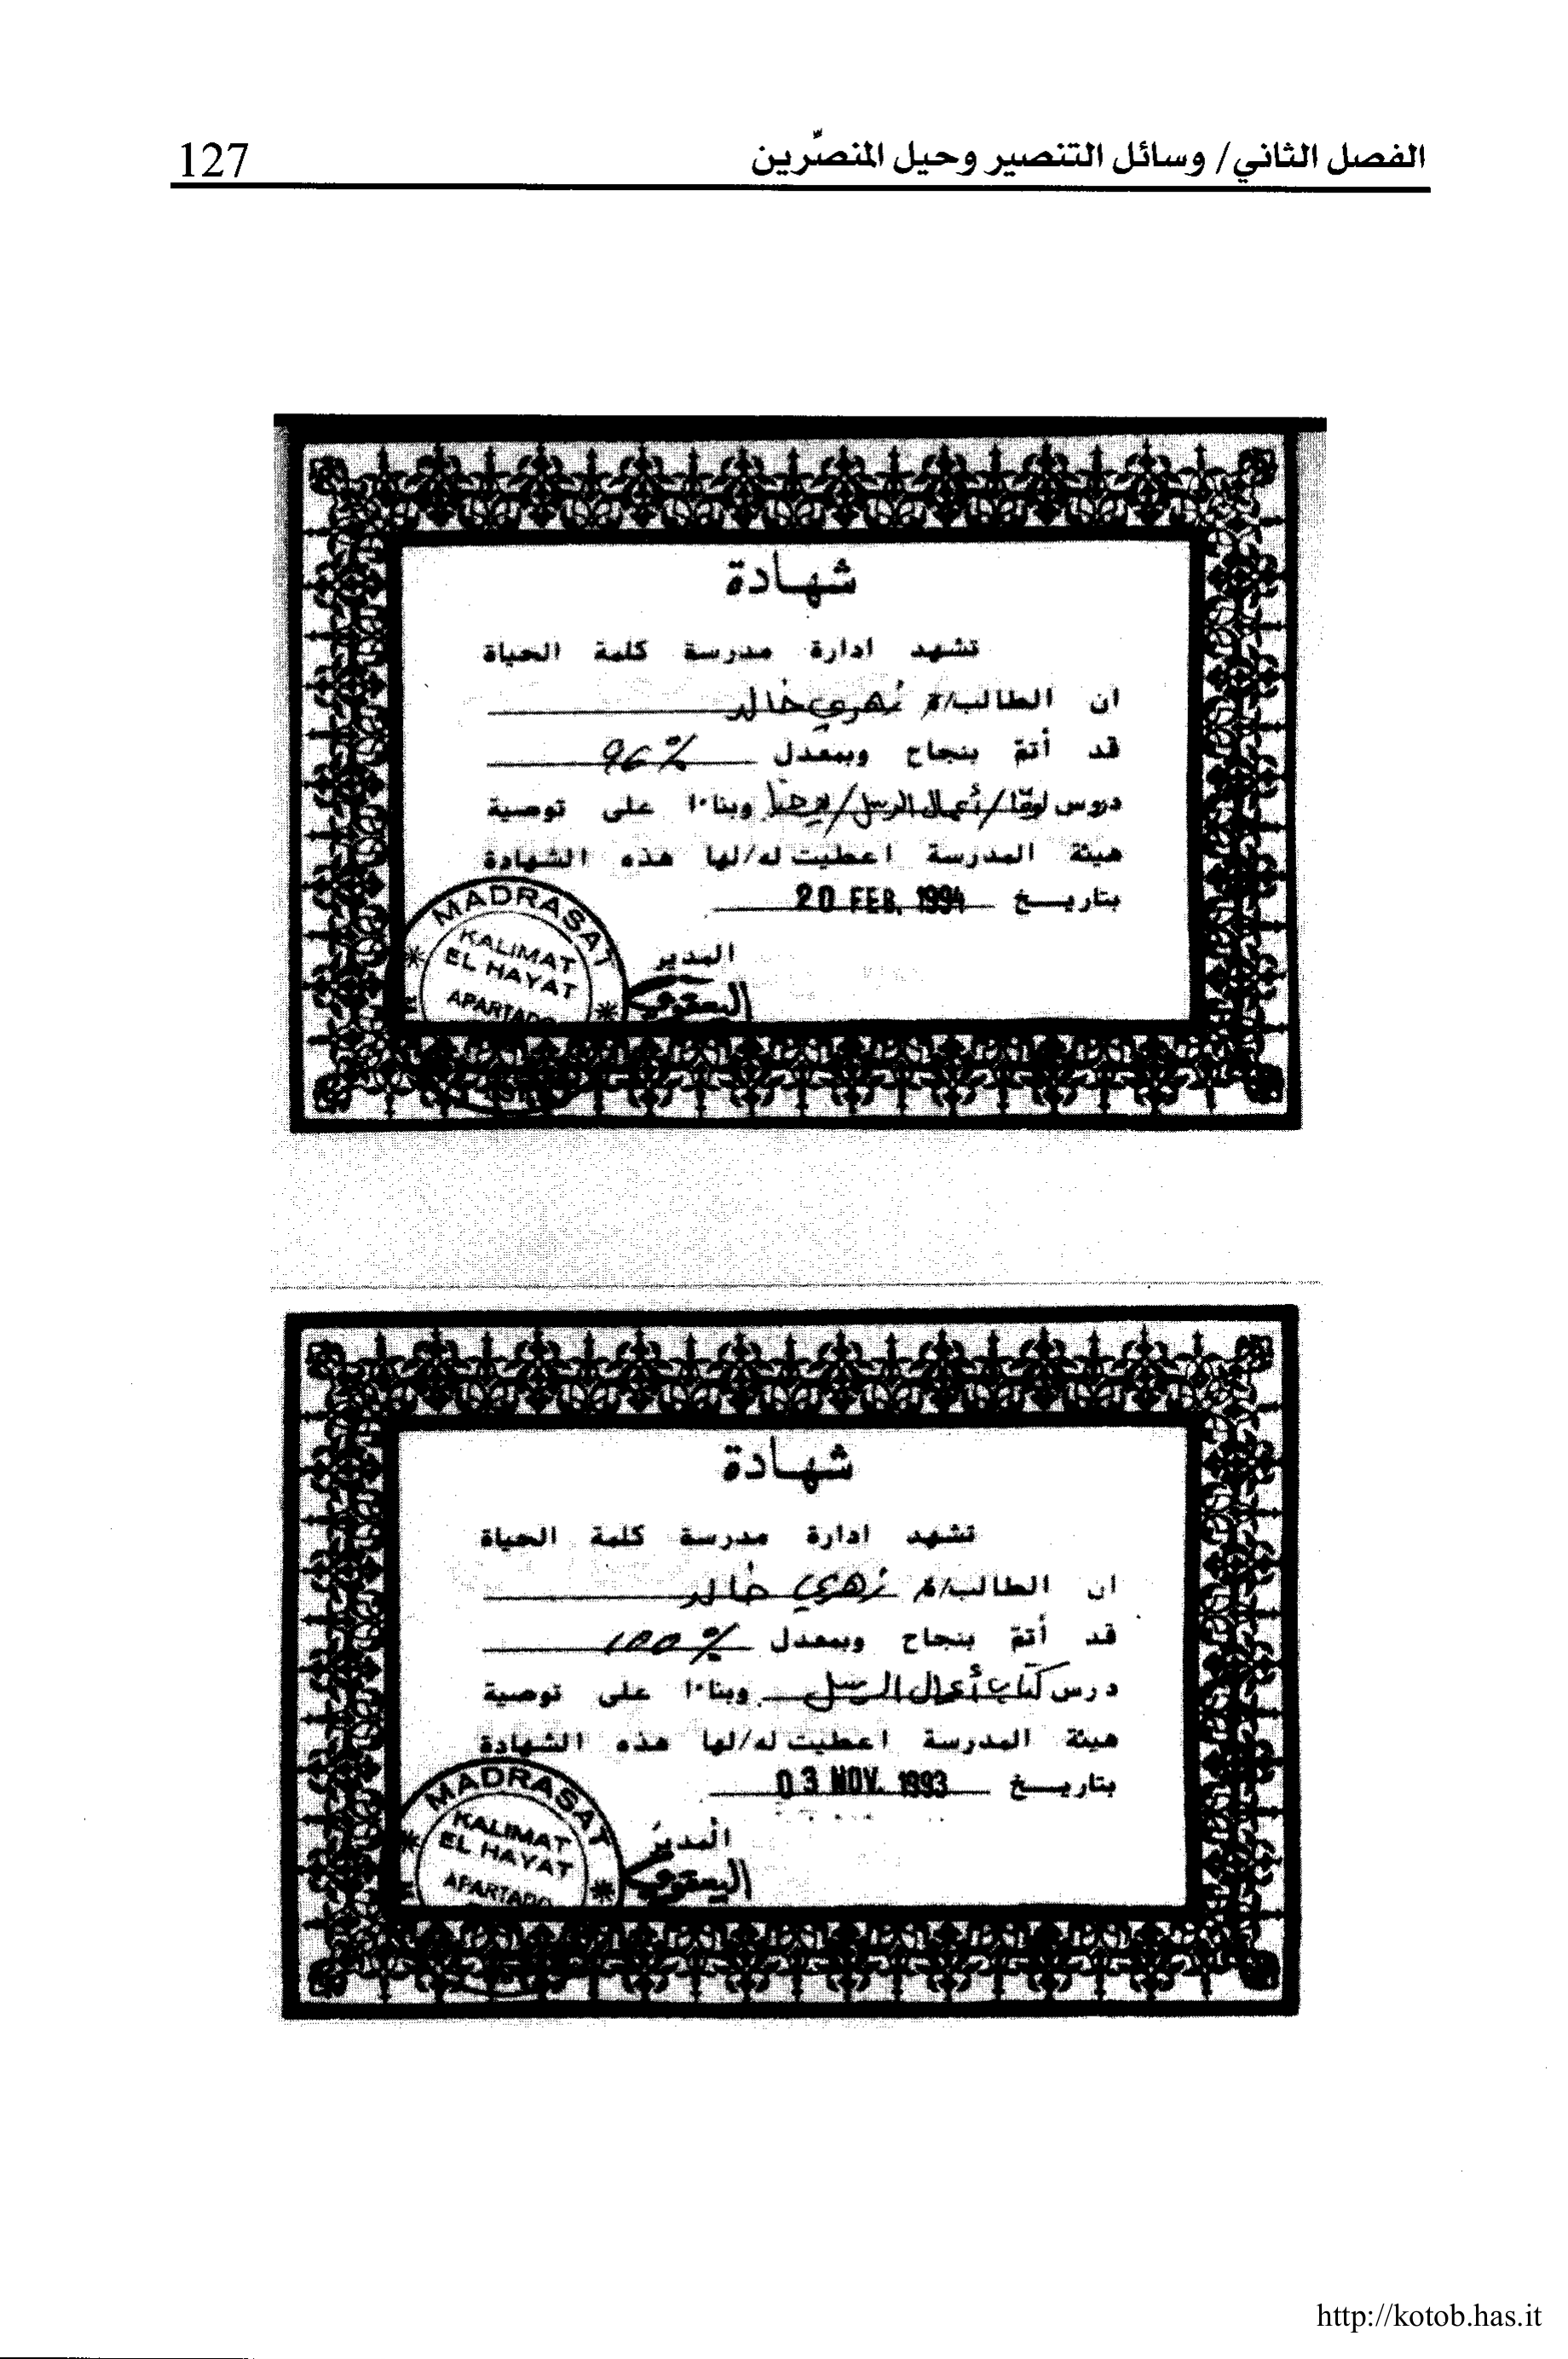 الفصل الثاني/ وسائل التنصير وحيل المنصِّرين
127
شهادة
تشهد ادارة مدرسة كلمة الحياة
ان الطالب/ة زهري خالد
قد أتمّ بنجاح وبمعدل 96%
دروس لوقا/أعمال الرسل/يوحنا وبناءا على توصية
هيئة المدرسة اعطيت له/لها هذه الشهادة
بتاريخ 20 FEB. 1994
المدير
اليعقوبي
MADRASAT
KALIMAT
EL HAYAT
APARTADO
شهادة
تشهد ادارة مدرسة كلمة الحياة
ان الطالب/ة زهري خالد
قد أتمّ بنجاح وبمعدل 100%
درس كتاب أعمال الرسل وبناءا على توصية
هيئة المدرسة اعطيت له/لها هذه الشهادة
بتاريخ 03 NOV. 1993
المدير
اليعقوبي
MADRASAT
KALIMAT
EL HAYAT
APARTADO
http://kotob.has.it